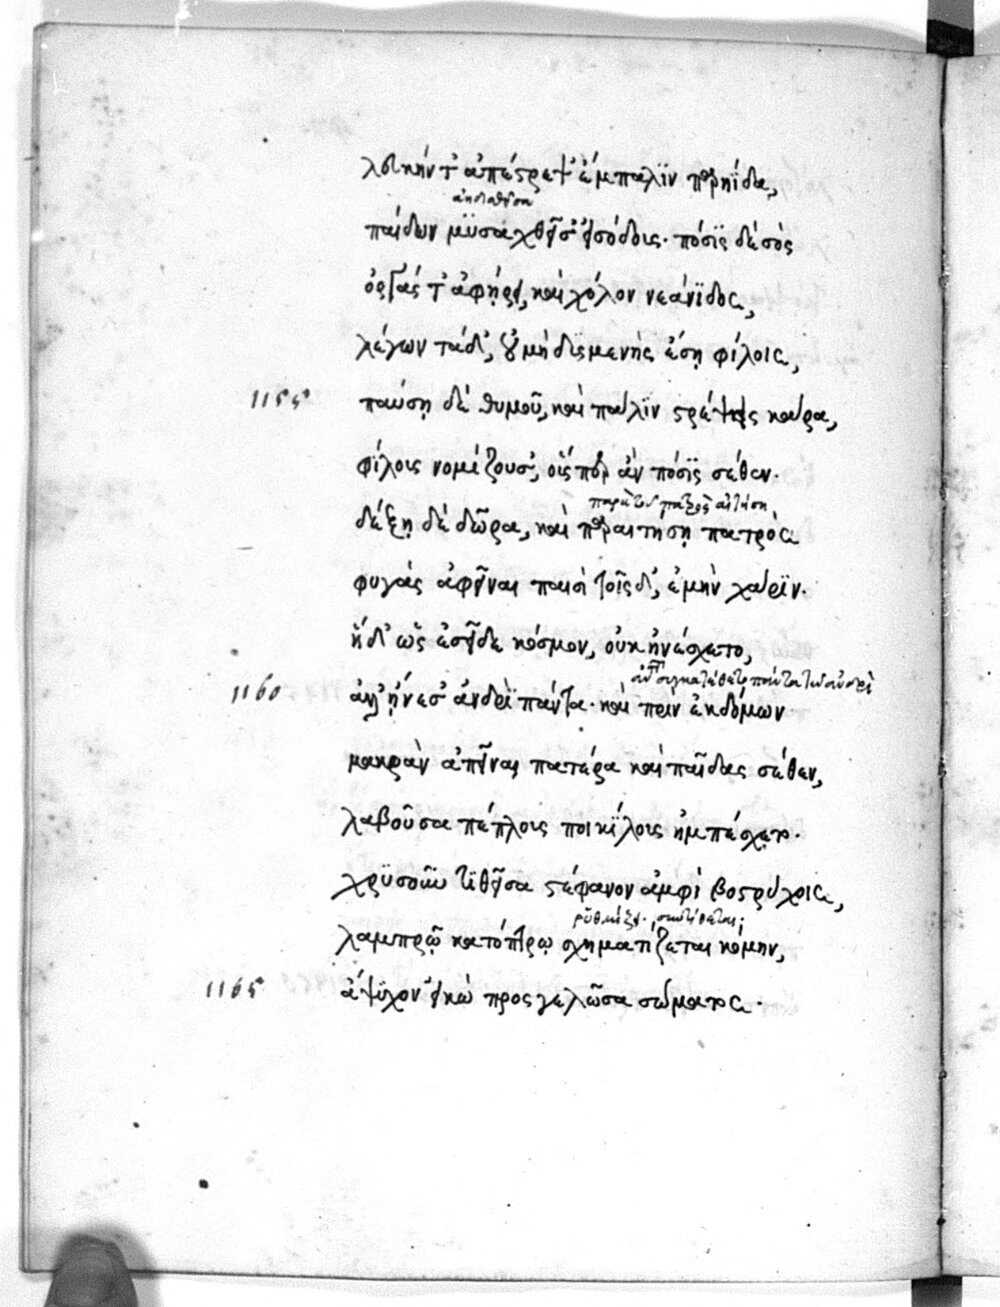 λευκήν τ' ἀπέστρεψ' ἔμπαλϊν παρηΐδα,
ἀηδισθεῖσα
παίδων μϋσαχθεῖσ' εἰσόδοις· πόσϊς δὲ σὸς
ὀργάς τ' ἀφῄρει, καὶ χόλον νεάνϊδος,
λέγων τάδ', οὐ μὴ δϋσμενὴς ἔσῃ φίλοις,
1155 παύσῃ δὲ θυμοῦ, καὶ πάλϊν στρέψεις κάρα,
φίλους νομίζουσ', οὕσπερ ἂν πόσϊς σέθεν·
παρὰ τοῦ πατρὸς αἰτήσῃ
δέξῃ δὲ δῶρα, καὶ παραιτήσῃ πατρὸς
φυγὰς ἀφεῖναι παισὶ τοῖς δ', ἐμὴν χάρϊν·
ἡ δ' ὡς ἐσεῖδε κόσμον, οὐκ ἠνέσχετο,
συγκατέθετο πάντα τῷ ἀνδρὶ
1160 ἀλλ' ᾔνεσ' ἀνδρὶ πάντα· καὶ πρὶν ἐκ δόμων
μακρὰν ἀπεῖναι πατέρα καὶ παῖδας σέθεν,
λαβοῦσα πέπλους ποικίλους ἠμπέσχετο·
χρϋσοῦν τϊθεῖσα στέφανον ἀμφὶ βοστρύχοις,
ῥυθμίζει· συντίθεται;
λαμπρῷ κατόπτρῳ σχηματίζεται κόμην,
1165 ἄψϋχον εἰκὼ προσγελῶσα σώματος·